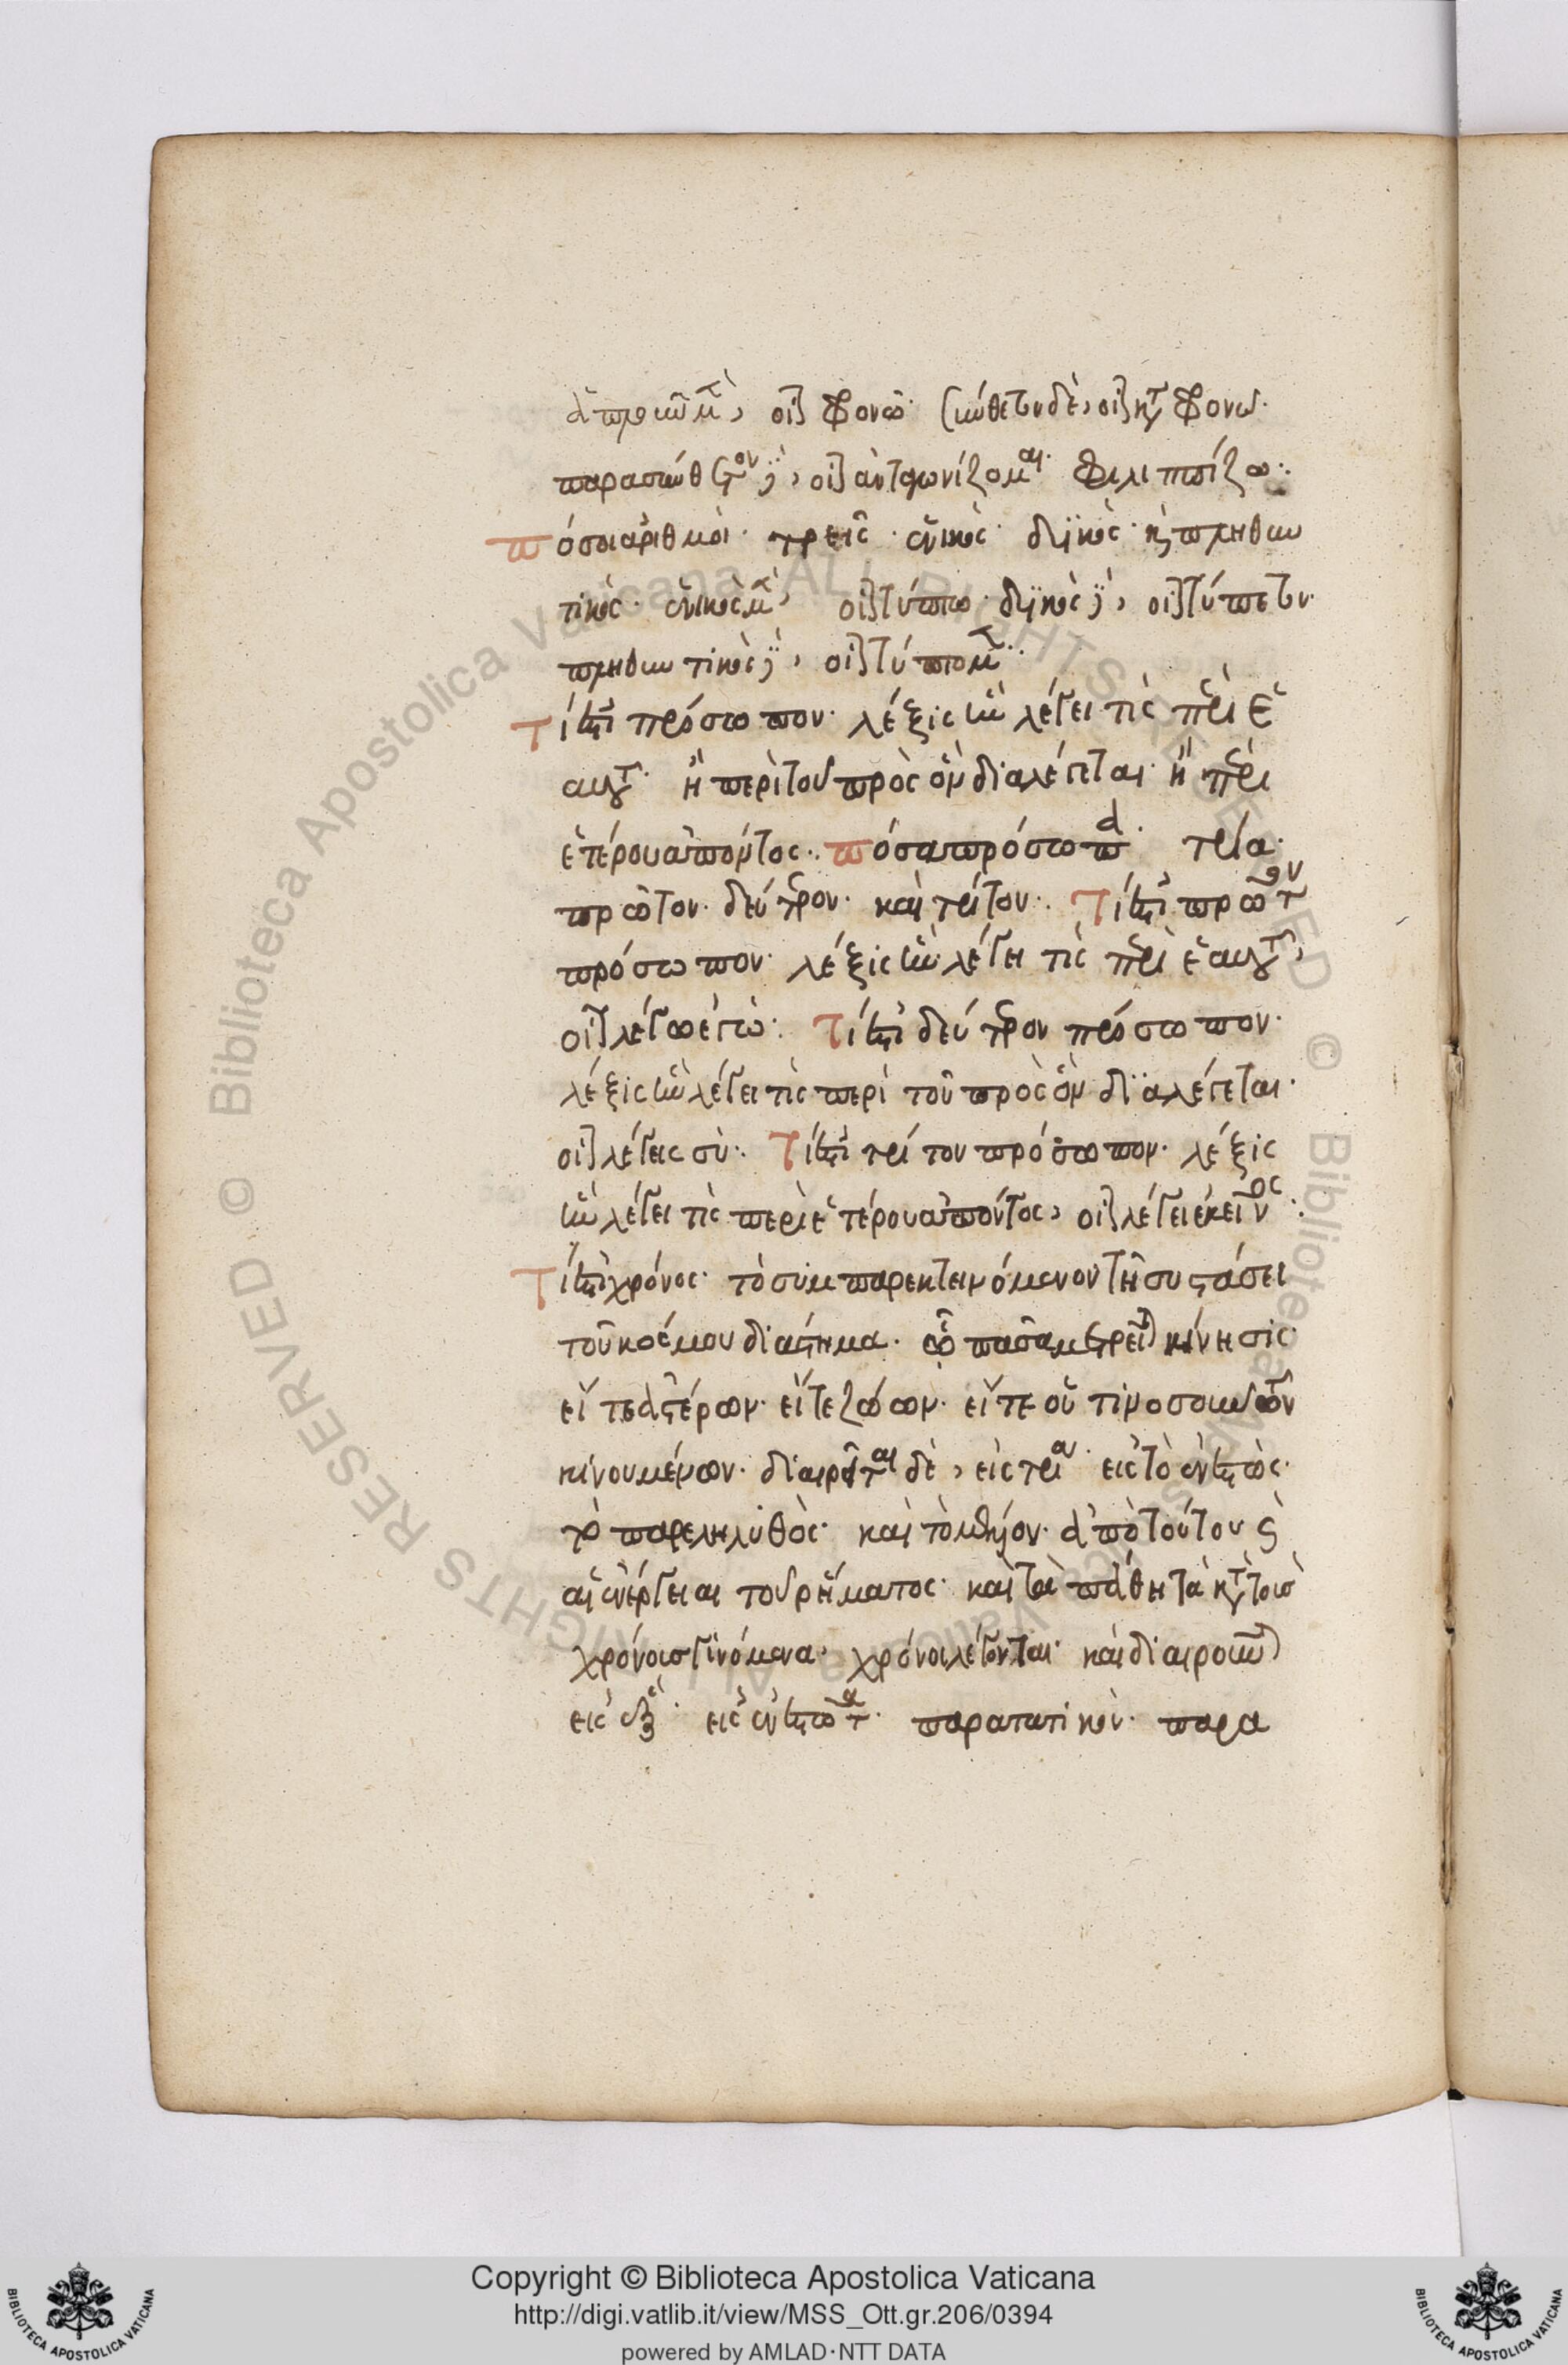 ἁπλοῦν μὲν, οἷον φρονῶ· σύνθετον δὲ, οἷον καταφρονῶ·
παρασύνθετον δὲ, οἷον ἀντιφωνίζομαι· φιλιππίζω:
πόσοι ἀριθμοί· τρεῖς· ἑνικὸς· δυϊκὸς· καὶ πληθυν
τικός· ἑνικὸς μὲν, οἷον τύπτω· δυϊκὸς δὲ, οἷον τύπτετον·
πληθυντικὸς δὲ, οἷον τύπτομεν:
τί ἐστι πρόσωπον· λέξις ἣν λέγει τὶς περὶ ἑ
αυτοῦ· ἢ περὶ τοῦ πρὸς ὃν διαλέγεται· ἢ περὶ
ἑτέρου ἀπόντος: πόσα πρόσωπα· τρία·
πρῶτον· δεύτερον· καὶ τρίτον: τί ἐστι πρῶτον
πρόσωπον· λέξις ἣν λέγει τὶς περὶ ἑαυτοῦ,
οἷον λέγω ἐγώ: τί ἐστι δεύτερον πρόσωπον·
λέξις ἣν λέγει τὶς περὶ τοῦ πρὸς ὃν διαλέγεται·
οἷον λέγεις σύ: τί ἐστι τρίτον πρόσωπον· λέξις
ἣν λέγει τὶς περὶ ἑτέρου ἀπόντος, οἷον λέγει ἐκεῖνος:
τί ἐστι χρόνος· τὸ συμπαρεκτεινόμενον τῇ συστάσει
τοῦ κόσμου διάστημα· ᾧ πᾶσα μετρεῖται κίνησις·
εἴτε ἀστέρων· εἴτε ζώων· εἴτε οὕτινοσοῦν τῶν
κινουμένων· διαιρεῖται δὲ, εἰς τρία· εἰς τὸ ἐνεστὼς·
τὸ παρεληλυθὸς· καὶ τὸ μέλλον· ἀπὸ τούτου
αἱ ἐνέργειαι τοῦ ῥήματος· καὶ τὰ πάθη τὰ κατὰ τοὺς
χρόνους γινόμενα· χρόνοι λέγονται· καὶ διαιροῦνται
εἰς ἕξ· εἰς ἐνεστῶτα· παρατατικόν· παρα
Copyright © Biblioteca Apostolica Vaticana
http://digi.vatlib.it/view/MSS_Ott.gr.206/0394
powered by AMLAD·NTT DATA